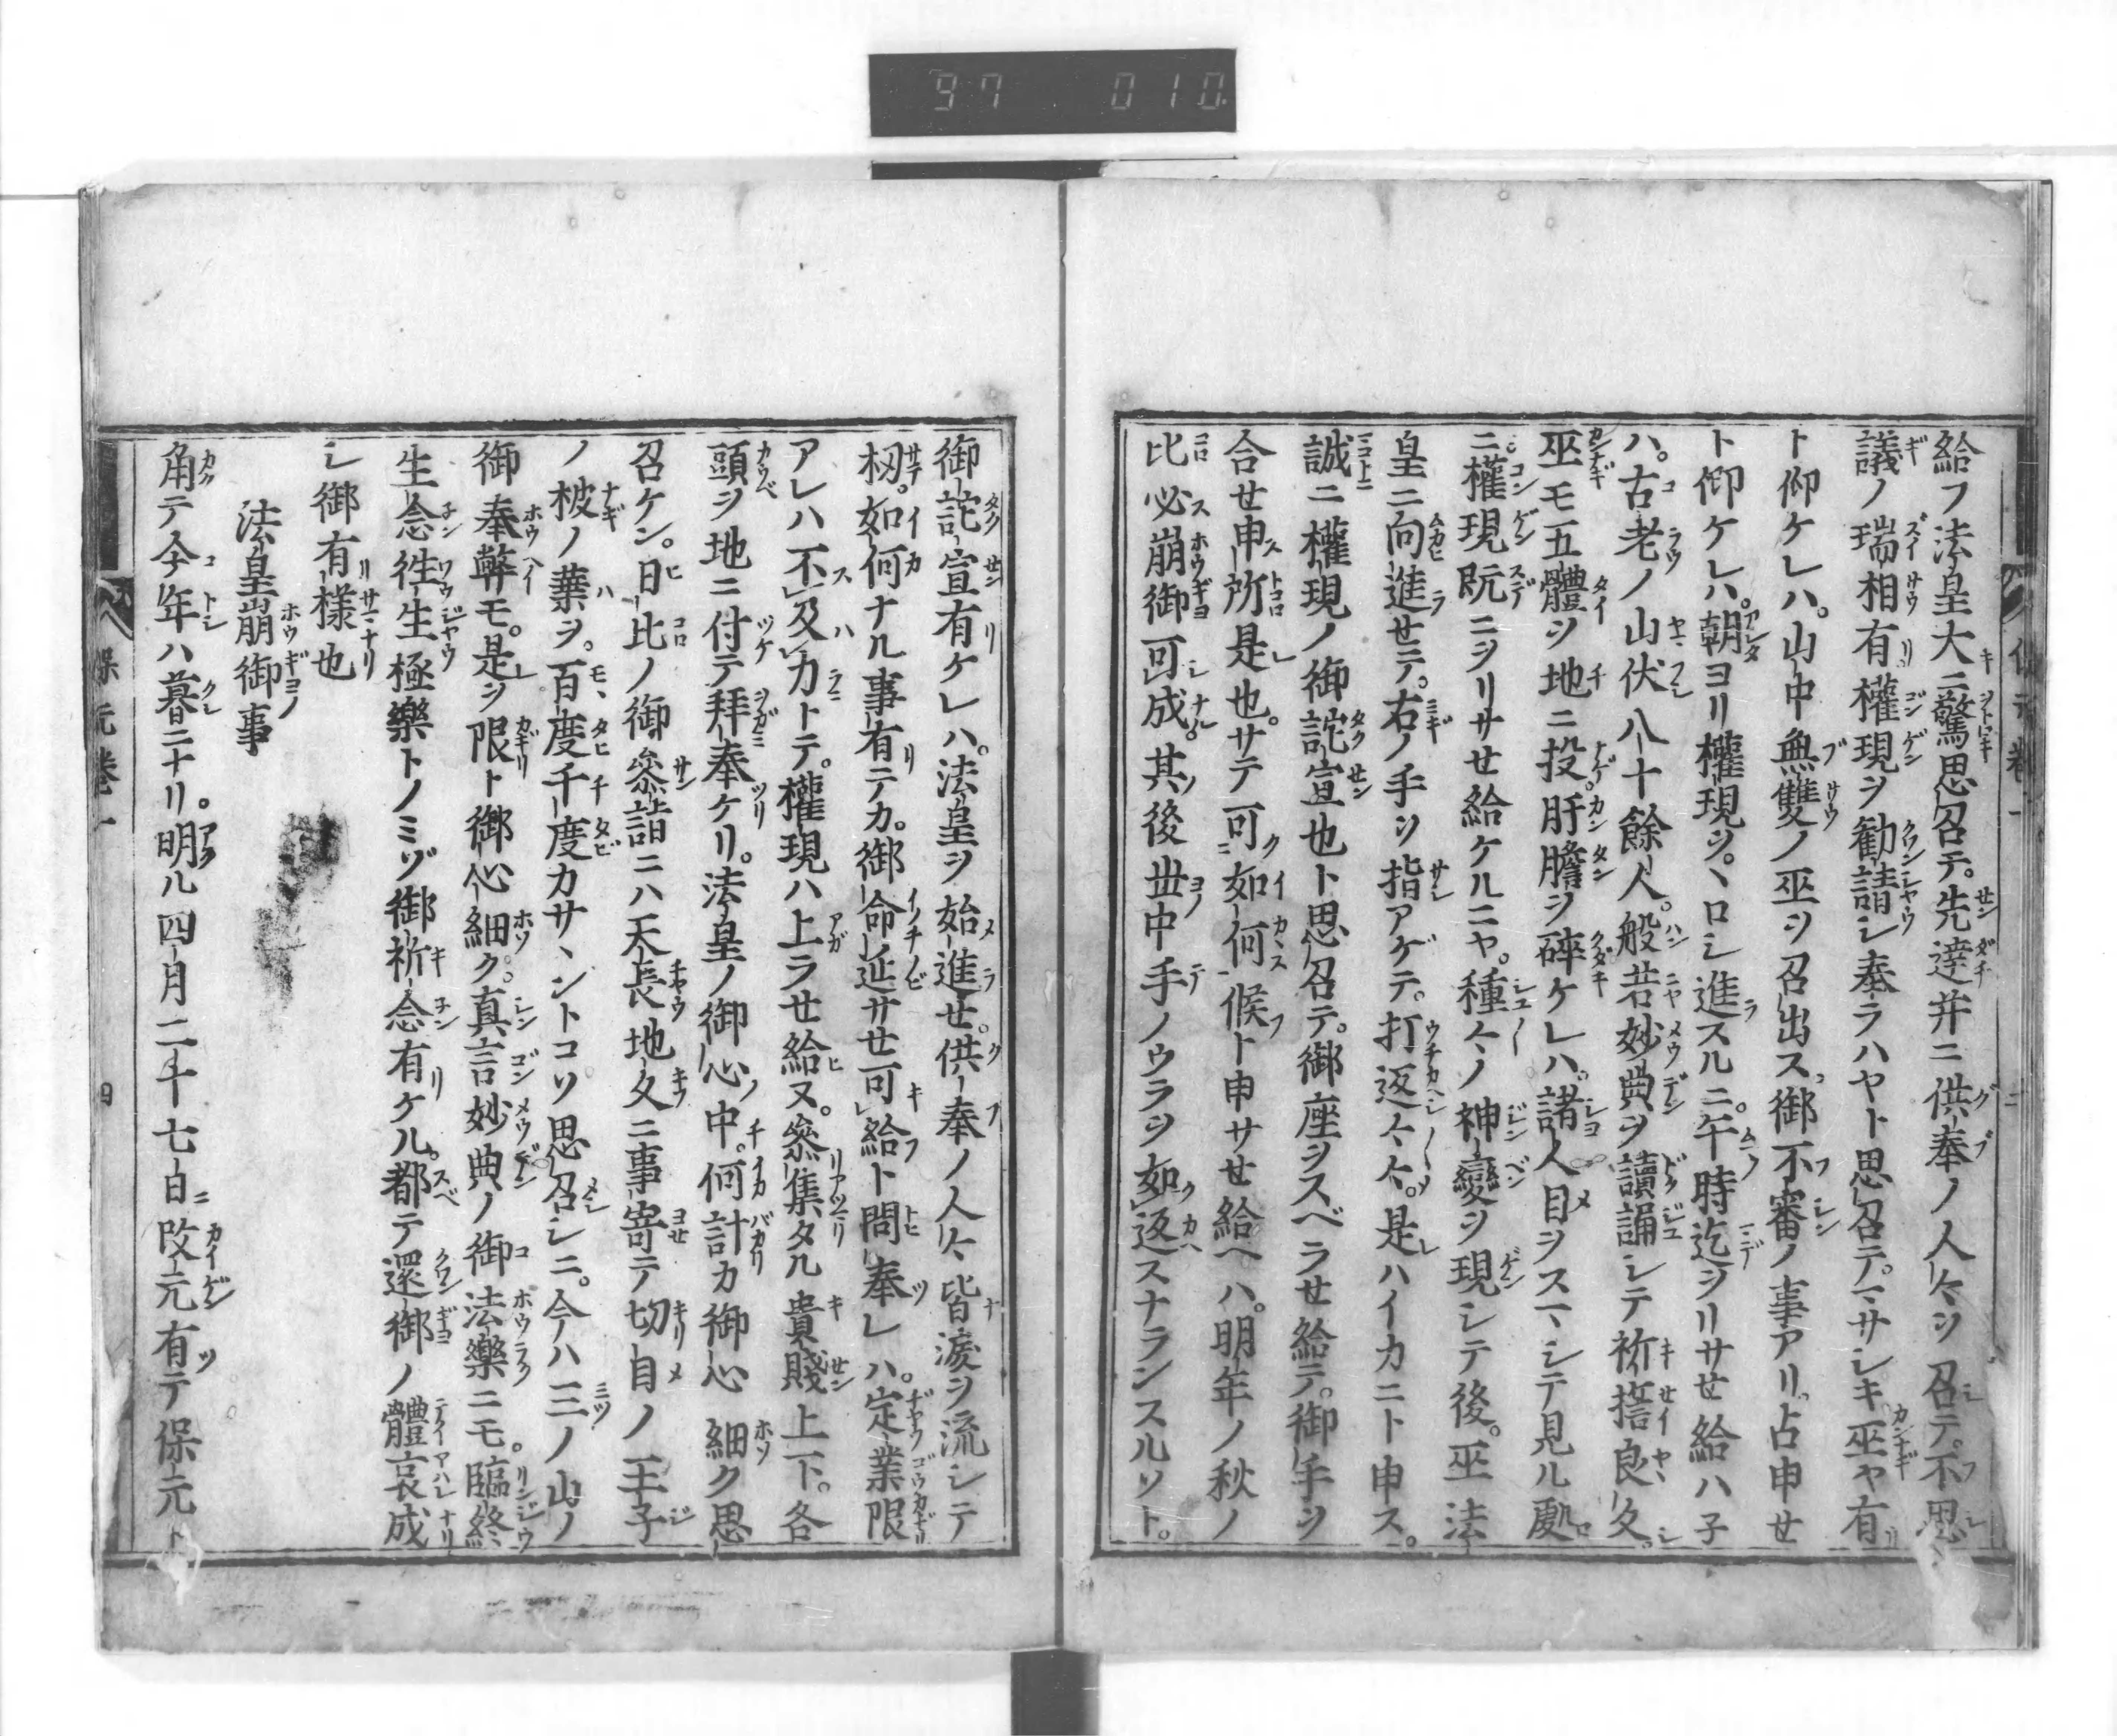 97 010
給フ法皇大ニ驚思召テ。先達并ニ供奉ノ人々ヲ召テ。不思
議ノ瑞相有。權現ヲ勸請シ奉ラハヤト思召テ。マサシキ巫ヤ有
ト仰ケレハ。山中無雙ノ巫ヲ召出ス。御不審ノ事アリ。占申せ
ト仰ケレハ。朝ヨリ權現ヲ。ヽロシ進スルニ。午時迄ヲリサせ給ハ子
ハ。古老ノ山伏八十餘人。般若妙典ヲ讀誦シテ祈誓良久。
巫モ五體ヲ地ニ投。肝膽ヲ碎ケレハ。諸人目ヲスマシテ見ル處
ニ。權現既ニヲリサせ給ケルニヤ。種々ノ神變ヲ現シテ後。巫法
皇ニ向進せテ。右ノ手ヲ指アゲテ。打返々々。是ハイカニト申ス。
誠ニ權現ノ御詫宣也ト思召テ。御座ヲスベラせ給テ。御手ヲ
合せ申所是也。サテ可如何候ト申サせ給ヘハ。明年ノ秋ノ
比必崩御可成。其後世中手ノウラヲ如返スナランスルソト。
御詫宣有ケレハ。法皇ヲ始進せ。供奉ノ人々皆涙ヲ流シテ
扨。如何ナル事有テカ。御命延サせ可給ト問奉レハ。定業限
アレハ不及力トテ。權現ハ上ラせ給ヌ。參集タル貴賤上下。各
頭ヲ地ニ付テ拜奉ケリ。法皇ノ御心中。何計カ御心細ク思
召ケン。日比ノ御參詣ニハ天長地久ニ事寄テ切目ノ王子
ノ梛ノ葉ヲ。百度千度カサヽントコソ思召シニ。今ハ三ノ山ノ
御奉幣モ。是ヲ限ト御心細ク。真言妙典ノ御法樂ニモ。臨終
生念徃生極樂トノミゾ御祈念有ケル。都テ還御ノ體哀成
シ御有樣也
法皇崩御事
角テ今年ハ暮ニナリ。明ル四月二十七日改元有テ保元ト
保元巻一
四